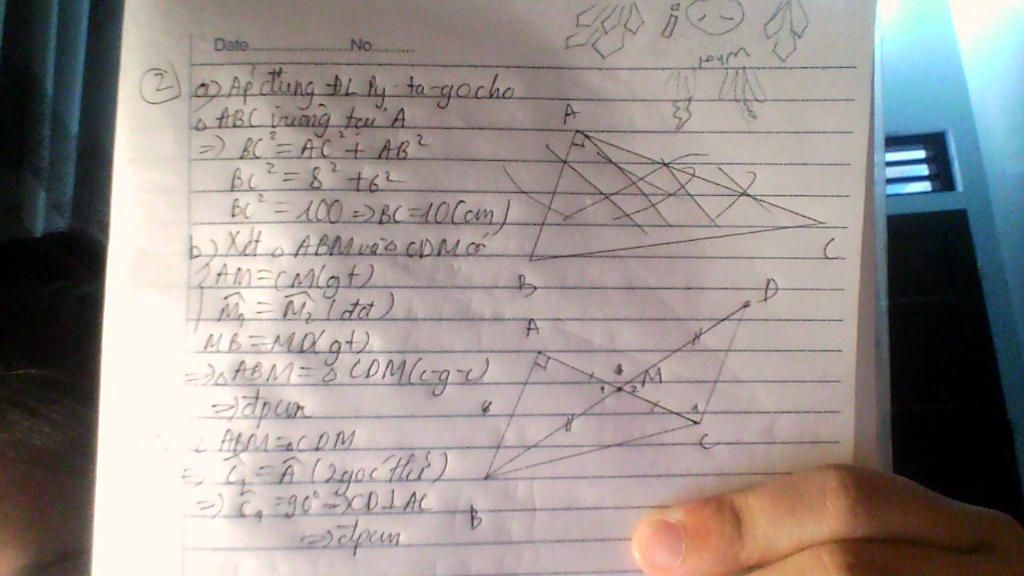 Date No
2 a) Áp dụng ĐL Py-ta-go cho
△ ABC vuông tại A
=> BC² = AC² + AB²
BC² = 8² + 6²
BC² = 100 => BC = 10 (cm)
b) Xét △ ABM và △ CDM có
AM = CM (gt)
M₁ = M₂ (đđ)
MB = MD (gt)
=> △ ABM = △ CDM (c-g-c)
=> đpcm
ABM = CDM
=> C₁ = A (2 góc
=> C₁ = 90° => CD⊥AC
=> đpcm
A
B
C
A
B
C
D
M
1
2
1